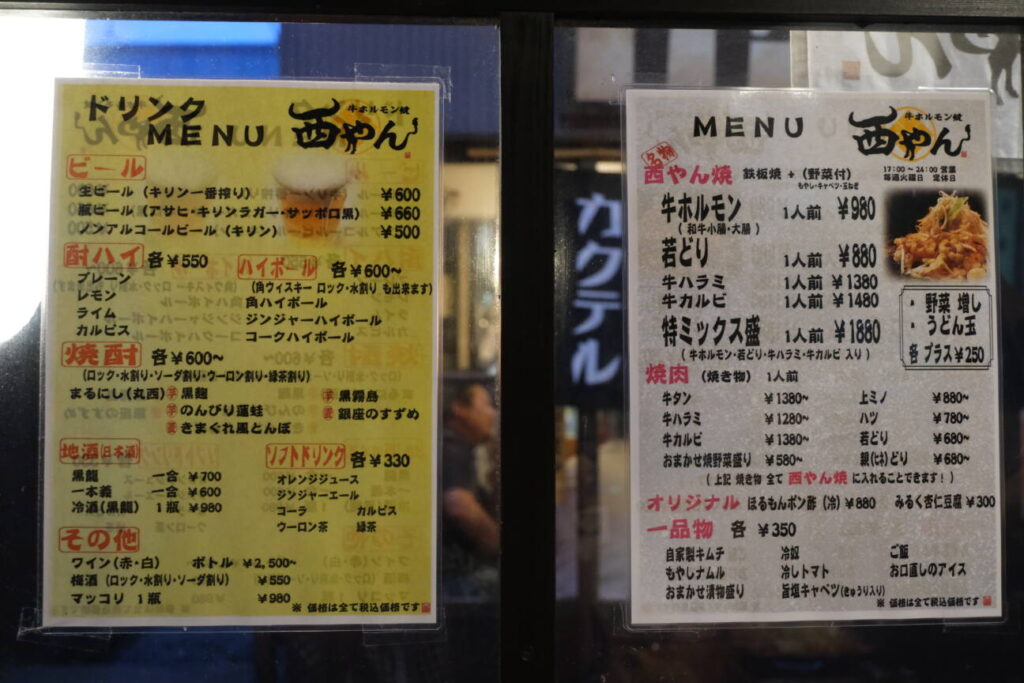 ドリンク
MENU
牛ホルモン
酉やん
ビール
生ビール (キリン一番搾り) ¥600
瓶ビール (アサヒ・キリンラガー・サッポロ黒) ¥660
ノンアルコールビール (キリン) ¥500
酎ハイ 各¥550
プレーン
レモン
ライム
カルピス
ハイボール 各¥600~
(角ウィスキー ロック・水割り も出来ます)
角ハイボール
ジンジャーハイボール
コークハイボール
焼酎 各¥600~
(ロック・水割り・ソーダ割り・ウーロン割り・緑茶割り)
まるにし(丸西) 芋 黒麹 芋 黒霧島
麦 のんびり蓮蛙 麦 銀座のすずめ
麦 きまぐれ風とんぼ
地酒(日本酒)
黒龍 一合 ¥700
一本義 一合 ¥600
冷酒(黒龍) 1瓶 ¥980
ソフトドリンク 各¥330
オレンジジュース
ジンジャーエール
コーラ カルピス
ウーロン茶 緑茶
その他
ワイン(赤・白) ボトル ¥2,500~
梅酒(ロック・水割り・ソーダ割り) ¥550
マッコリ 1瓶 ¥980
※ 価格は全て税込価格です
カクテル
MENU
牛ホルモン
酉やん
17:00~24:00 営業
毎週火曜日 定休日
名物
酉やん焼 鉄板焼 + (野菜付)
もやし・キャベツ・玉ねぎ
牛ホルモン 1人前 ¥980
( 和牛小腸・大腸 )
若どり 1人前 ¥880
牛ハラミ 1人前 ¥1380
牛カルビ 1人前 ¥1480
特ミックス盛 1人前 ¥1880
( 牛ホルモン・若どり・牛ハラミ・牛カルビ 入り )
・野菜 増し
・うどん玉
各 プラス¥250
焼肉 (焼き物) 1人前
牛タン ¥1380~ 上ミノ ¥880~
牛ハラミ ¥1280~ ハツ ¥780~
牛カルビ ¥1380~ 若どり ¥680~
おまかせ焼野菜盛り ¥580~ 親(ヒネ)どり ¥680~
( 上記 焼き物 全て 酉やん焼 に入れることできます! )
オリジナル ほるもんポン酢 (冷) ¥880 みるく杏仁豆腐 ¥300
一品物 各 ¥350
自家製キムチ 冷奴 ご飯
もやしナムル 冷しトマト お口直しのアイス
おまかせ漬物盛り 旨塩キャベツ(きゅうり入り)
※ 価格は全て税込価格です